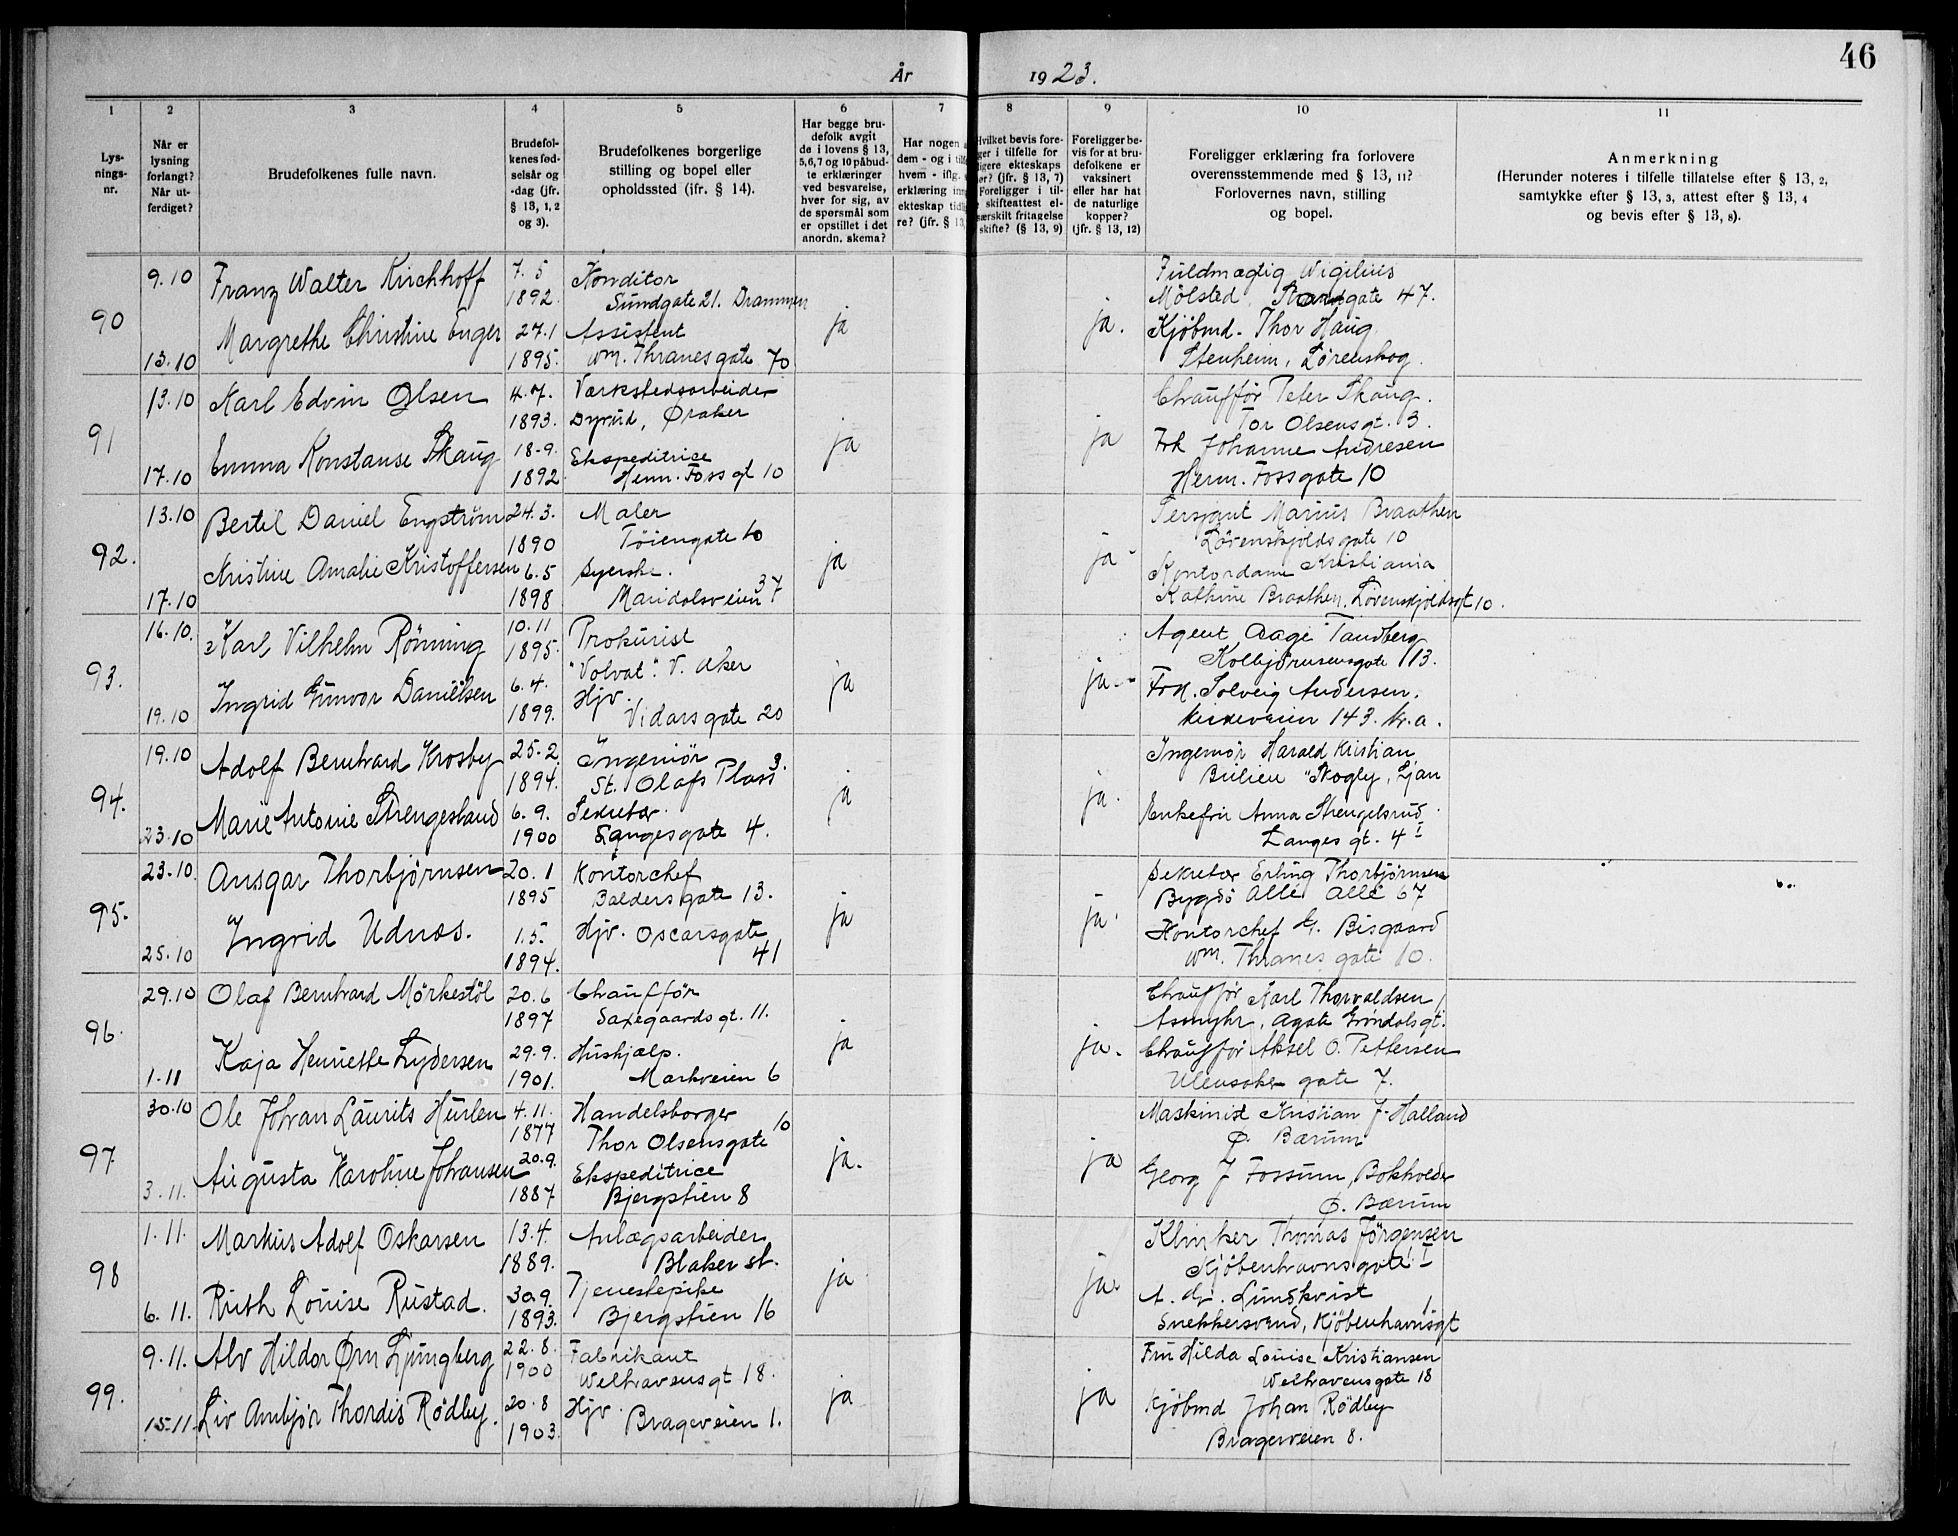 46
År 1923.
1 2 3 4 5 6 7 8 9 10 11
Lys-
nings-
nr.
Når er
lysning
forlangt?
Når ut-
ferdiget?
Brudefolkenes fulle navn.
Brudefol-
kenes fød-
selsår og
-dag (jfr.
§ 13, 1, 2
og 3).
Brudefolkenes borgerlige
stilling og bopel eller
opholdssted (jfr. § 14).
Har begge bru-
defolk avgit
de i lovens § 13,
5,6,7 og 10 påbud-
te erklæringer
ved besvarelse,
hver for sig, av
de spørsmål som
er opstillet i det
anordn. skema?
Har nogen
dem - og i tilf
hvem - iflg.
erklæring inn
ekteskap tidli
re? (jfr. § 13,
Hvilket bevis fore-
ger i tilfelle for
ligere ekteskaps
ør? (jfr. § 13, 7)
Foreligger i til-
skifteattest el-
særskilt fritagelse
skifte? (§ 13, 9)
Foreligger be-
vis for at bru-
defolkene er
vaksinert
eller har hat
de naturlige
kopper?
(jfr. § 13, 12)
Foreligger erklæring fra forlovere
overensstemmende med § 13, 11?
Forlovernes navn, stilling
og bopel.
Anmerkning
(Herunder noteres i tilfelle tillatelse efter § 13, 2,
samtykke efter § 13, 3, attest efter § 13, 4
og bevis efter § 13, 8).
90
9.10 Franz Walter Kirchhoff 7. 5 Konditor
1892. Sundgate 21. Drammen
Margrethe Christine Enger 27.1 Assistent
13.10 1895. Wm. Thranesgate 70
ja ja.
Fuldmægtig Wigilius
Mølsted, Strandgate 47.
Kjøbmd. Thor Haug
Stenheim, Lørenskog.
91
13.10 Karl Edvin Olsen 4.7. Værkstedsarbeider
1893. Dyrud, Øraker
Emma Konstanse Skaug 18-9. Ekspeditrice
17.10 1892 Herm. Foss gt 10
ja ja
Chauffør Peter Skaug.
Tor Olsensgt. 3.
Frk Johanne Andresen
Herm. Fossgate 10
92.
13.10 Bertil Daniel Engstrøm 24.3. Maler
1890 Tøiengate 10
Kristine Amalie Kristoffersen 6.5 Syerske.
17.10 1898 Maridalsveien 37
ja ja
Sersjant Marius Braathen
Lørenskjoldsgate 10
Kontordame Kristiania
Kathrine Braathen. Lørenskjoldsgt 10.
93.
16.10. Karl Vilhelm Rønning 10.11 Prokurist
1895. "Volvat". V. Aker
Ingrid Gunvor Danielsen 6.4. Hjv.
19.10 1899. Vidarsgate 20
ja ja.
Agent Aage Tandberg
Kolbjørnsensgate 113.
Frk. Solveig Andersen.
Kirkeveien 143. Kr.a.
94.
19.10 Adolf Bernhard Krosby 25-2. Ingeniør
1894. St. Olafs Plass 3.
Marie Antonie Strengestand 6.9. Sekretær
23.10 1900 Langesgate 4.
ja ja.
Ingeniør Harald Kristian
"Skogly, Ljan
Enkefru Anna Strengelsrud
Langes gt. 4 I
95.
23.10. Ansgar Thorbjørnsen 20. 1 Kontorchef
1895 Baldersgate 13.
Ingrid Udnæs. 1.5. Hjv. Oscarsgate
25.10 1894. 41
ja ja.
Sekretær Erling Thorbjørnsen
Bygdø Alle Allé 67
Kontorchef G. Bisgaard
Wm. Thranes gate 10.
96.
29.10 Olaf Bernhard Mörkestöl 20.6 Chauffør
1897 Saxegaardsgt. 11.
Kaja Henriette Lydersen 29.9. Hushjælp.
1.11 1901. Markveien 6
ja ja.
Chauffør Karl Thorvaldsen
Asmyhr, Agate Grøndalsgt.
Chauffør Aksel O. Pettersen
Ulensaker gate 7.
97
30.10 Ole Johan Laurits Hurlen 4.11. Handelsborger
1877 Thor Olsensgate 10
Augusta Karoline Johansen 20.9. Ekspeditrice
3.11. 1887 Bjergstien 8
ja. ja
Maskinist Kristian J. Halland
Ø. Bærum
Georg J Fossum, Bokholder
Ø. Bærum
98
1.11. Markus Adolf Oskarsen 13.4. Anlægsarbeider
1889. Blaker st.
Ruth Louise Rustad. 30.9. Tjenestepike
6.11. 1893. Bjergstien 16
ja ja.
Klinker Thomas Jørgensen
Kjøbenhavnsgate 1 I
A. G. Lundkvist
Snekkersvend, Kjöbenhavnsgt 1
99.
9.11. Alv Hildor Ørn Ljungberg 22.8. Fabrikant
1900 Welhavensgt 18.
Liv Annbjør Thordis Rødby. 20.8 Hjv.
15-11. 1903. Brageveien 1.
ja ja
Fru Hilda Louise Kristiansen
Welhavensgate 18
Kjøbmd Johan Rødby
Bragerveien 8.